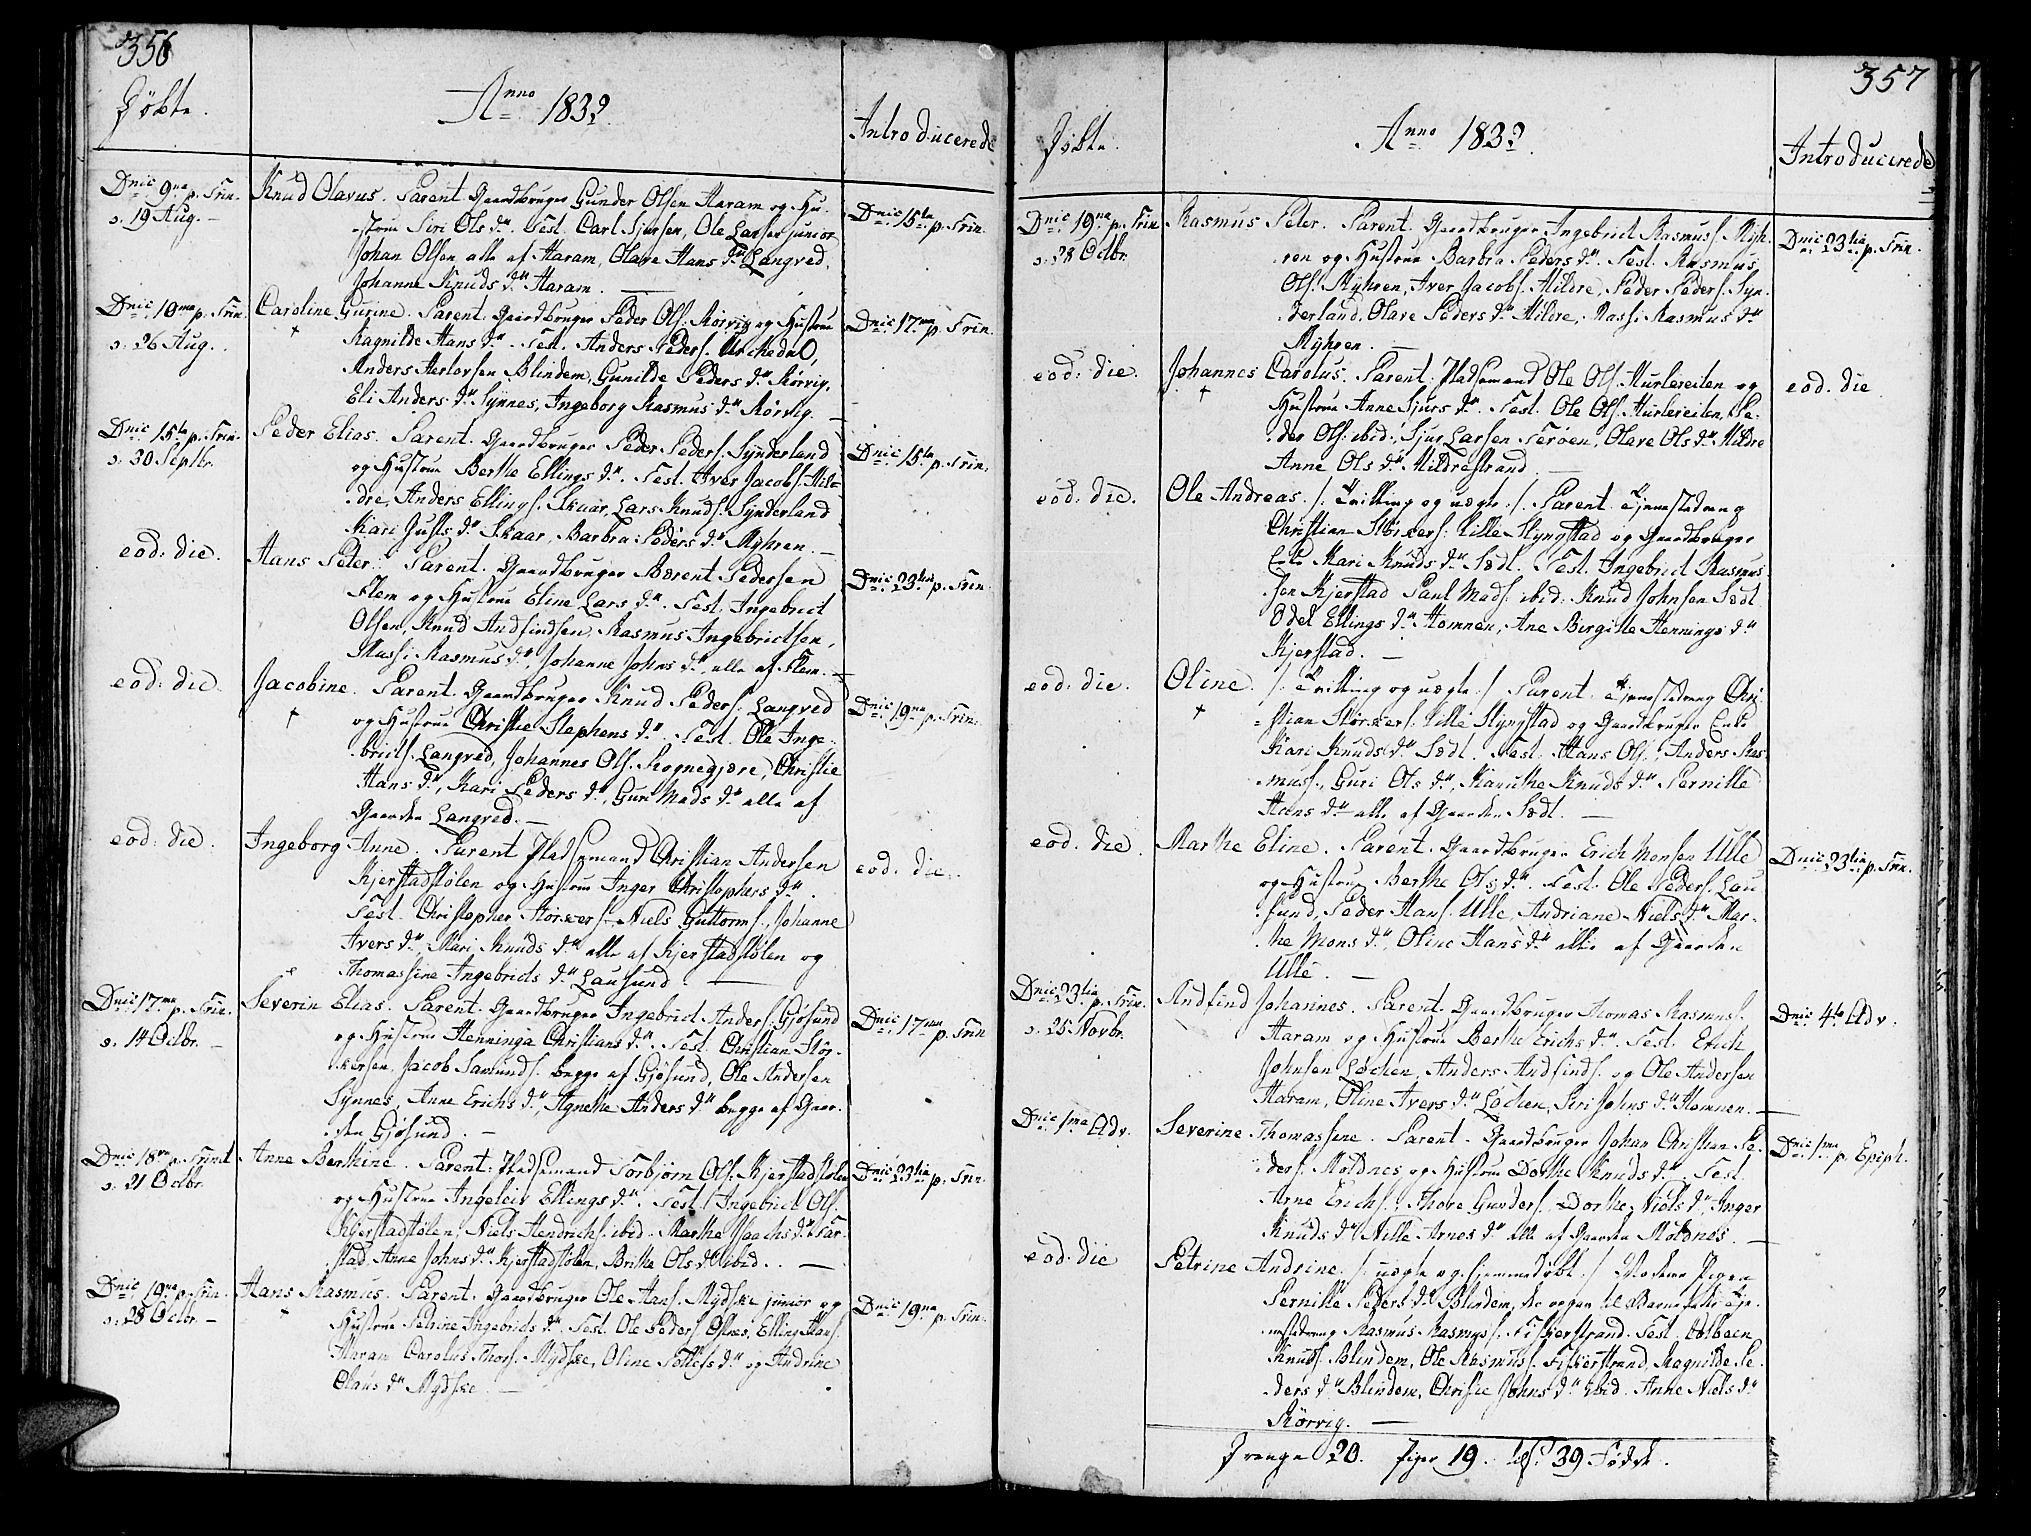 356
Døbte.
Anno 1832.
Introducerede
Dnic. 9na p. Trin.
d. 19 Aug. –
Knud Olavus. Parent. Gaardbruger Gunder Olsen Haram og Hu-
strue Siri Ols dr. Test. Carl Sjursen, Ole Larsen junior
Johan Olsen alle af Haram, Olave Hans dr Langved,
Johanne Knuds dr Haram. —
Dnic. 15ta p. Trin.
Dnic. 10ma p. Trin.
d. 26 Aug.
Caroline Gurine. Parent. Gaardbruger Peder Ols. Rörvig og Hustrue
Ragnilde Hans dr. Test. Anders Peders.
Anders Herlovsen Blindem, Gunilde Peders dr Rörvig,
Eli Anders dr Synnes, Ingeborg Rasmus dr Rörvig. —
Dnic. 17ma p. Trin.
Dnic. 15ta p. Trin.
d. 30 Septbr.
Peder Elias. Parent. Gaardbruger Peder Peders. Synderland
og Hustrue Berthe Ellings dr. Test. Iver Jacobs. Hil-
dre, Anders Ellings. Skaar, Lars Knuds. Synderland
Kari Gusts dr Skaar, Barbra Peders dr Myhren. —
Dnic. 15ta p. Trin.
eod. die.
Hans Peter. Parent. Gaardbruger Bærent Pedersen
Flem og Hustrue Eline Lars dr. Test. Ingebrict
Olsen, Knud Andfindsen, Rasmus Ingebrictsen,
Massi Rasmus dr, Johanne Johns dr alle af Flem. —
Dnic. 23tia p. Trin.
eod. die.
Jacobine. Parent. Gaardbruger Knud Peders. Langved
og Hustrue Christie Stephens dr. Test. Ole Inge-
bricts. Langved, Johannes Ols. Rognegjære, Christie
Hans dr, Kari Peders dr, Guri Mads dr alle af
Gaarden Langved. —
Dnic. 19na p. Trin.
eod. die.
Ingeborg Anne. Parent. Pladsemand Christian Andersen
Kjerstadstølen og Hustrue Inger Christophers dr.
Test. Christopher Størkers. Niels Guttorms., Johanne
Ivers dr, Mari Knuds dr alle af Kjerstadstølen og
Thomassine Ingebricts dr Lausund. —
eod. die.
Dnic. 17ma p. Trin.
d. 14 Octbr. –
Severin Elias. Parent. Gaardbruger Ingebrict Anders. Gjøsund
og Hustrue Henninga Christians dr. Test. Christian Stör-
kersen, Jacob Samunds. begge af Gjøsund, Ole Andersen
Synnes, Anne Erichs dr, Agnethe Anders dr begge af Gaar-
den Gjøsund. —
Dnic. 17ma p. Trin
Dnic. 18va p. Trinit
d. 21 Octbr.
Anne Berthine. Parent. Pladsemand Torbjörn Ols. Kjerstadstølen
og Hustrue Angeleiv Ellings dr. Test. Ingebrict Ols.
Kjerstadstølen, Niels Hendrichs. ibid. Marthe Isachs dr
Anne Johns dr Kjerstadstølen, Brithe Ols dr ibid. —
Dnic. 23tia p. Trin.
Dnic. 19na p. Trin.
d. 28 Octbr. –
Hans Rasmus. Parent. Gaardbruger Ole Hans. Mydske junior og
Hustrue Petrine Ingebricts dr. Test. Ole Peders. Elling Hans.
Haram, Carolus Thors. Mydske, Oline Tolless dr og Andrine
Claus dr Mydske. —
Dnic. 19na p. Trin.
357
Døbte.
Anno 1832.
Introducerede
Dnic. 19na p. Trin
d. 28 Octbr.
Rasmus Peter. Parent. Gaardbruger Ingebrict Rasmuss. Myh-
ren og Hustrue Barbra Peders dr. Test. Rasmus
Ols. Myhren, Iver Jacobs. Hildre, Peder Peders. Syn-
derland, Olave Peders dr Hildre, Massi Rasmus dr
Myhren. —
Dnic. 23tia p. Trin.
eod. die.
Johannes Carolus. Parent. Pladsemand Ole Ols. Hurlereiten og
Hustrue Anne Sjurs dr. Test. Ole Ols. Hurlereiten, Pe-
der Ols. ibid., Sjur Larsen Terøen, Olave Ols dr Hildre
Anne Ols dr Hildrestrand. —
eod. die
eod. die.
Ole Andreas. /: Tvilling og uægte :/ Parent. Tjenestedreng
Christian Störkers. Lille Slyngstad og Gaardbruger
Enke Mari Knuds dr Sædt. Test. Ingebrict Rasmus-
sen Kjerstad Paul Mads. ibid. Knud Johnsen Sædt
Odel Ellings dr Hamnen, Ane Birgitte Hennings dr
Kjerstad. —
eod. die.
Oline. /: Tvilling og uægte :/ Parent. Tjenestedreng Chri-
stian Störkers. Lille Slyngstad og Gaardbruger Enke
Kari Knuds dr Sædt. Test. Hans Ols., Anders Ras-
muss., Guri Ols dr, Marithe Knuds dr Pernille
Hans dr alle af Gaarden Sædt. —
eod. die.
Marthe Eline. Parent. Gaardbruger Erich Monsen Ulle
og Hustrue Berthe Ols dr. Test. Ole Peders. Lau-
sund, Peder Hans. Ulle, Andriane Niels dr Mar-
the Mons dr, Oline Hans dr alle af Gaarden
Ulle. —
Dnic. 23tia p. Trin.
Dnic. 23tia p. Trin.
d. 25 Novbr.
Andfind Johannes. Parent. Gaardbruger Thomas Rasmuss.
Haram og Hustrue Berthe Erichs dr. Test. Erich
Johnsen Løchen, Anders Andfinds. og Ole Andersen
Haram, Oline Ivers dr Løchen, Siri Johns dr Hamnen. —
Dnic. 4ta Adv.
Dnic. 1ma Adv.
Severine Thomassene. Parent. Gaardbruger Johan Christian Pe-
ders. Moldnes og Hustrue Dorthe Knuds dr. Test.
Arne Erichs., Thore Gunders. Dorthe Niels dr, Inger
Knuds dr, Nille Arnes dr alle af Gaarden Moldnes. —
Dnic. 1ma p. Epiph.
eod. die
Petrine Andrine. /: uægte og hjemmedøbt :/ Moderen Pigen
Pernille Peders dr Blindem, der opgav til Barnefader Tje-
nestedreng Rasmus Rasmuss. Fiskerstrand. Test.
Knuds. Blindem, Ole Rasmuss. Fiskerstrand, Ragnilde Pe-
ders dr Blindem, Christie Johns dr ibid. Anne Niels dr
Rörvig. —
Drenge 20. Piger 19. 39 Fødte.